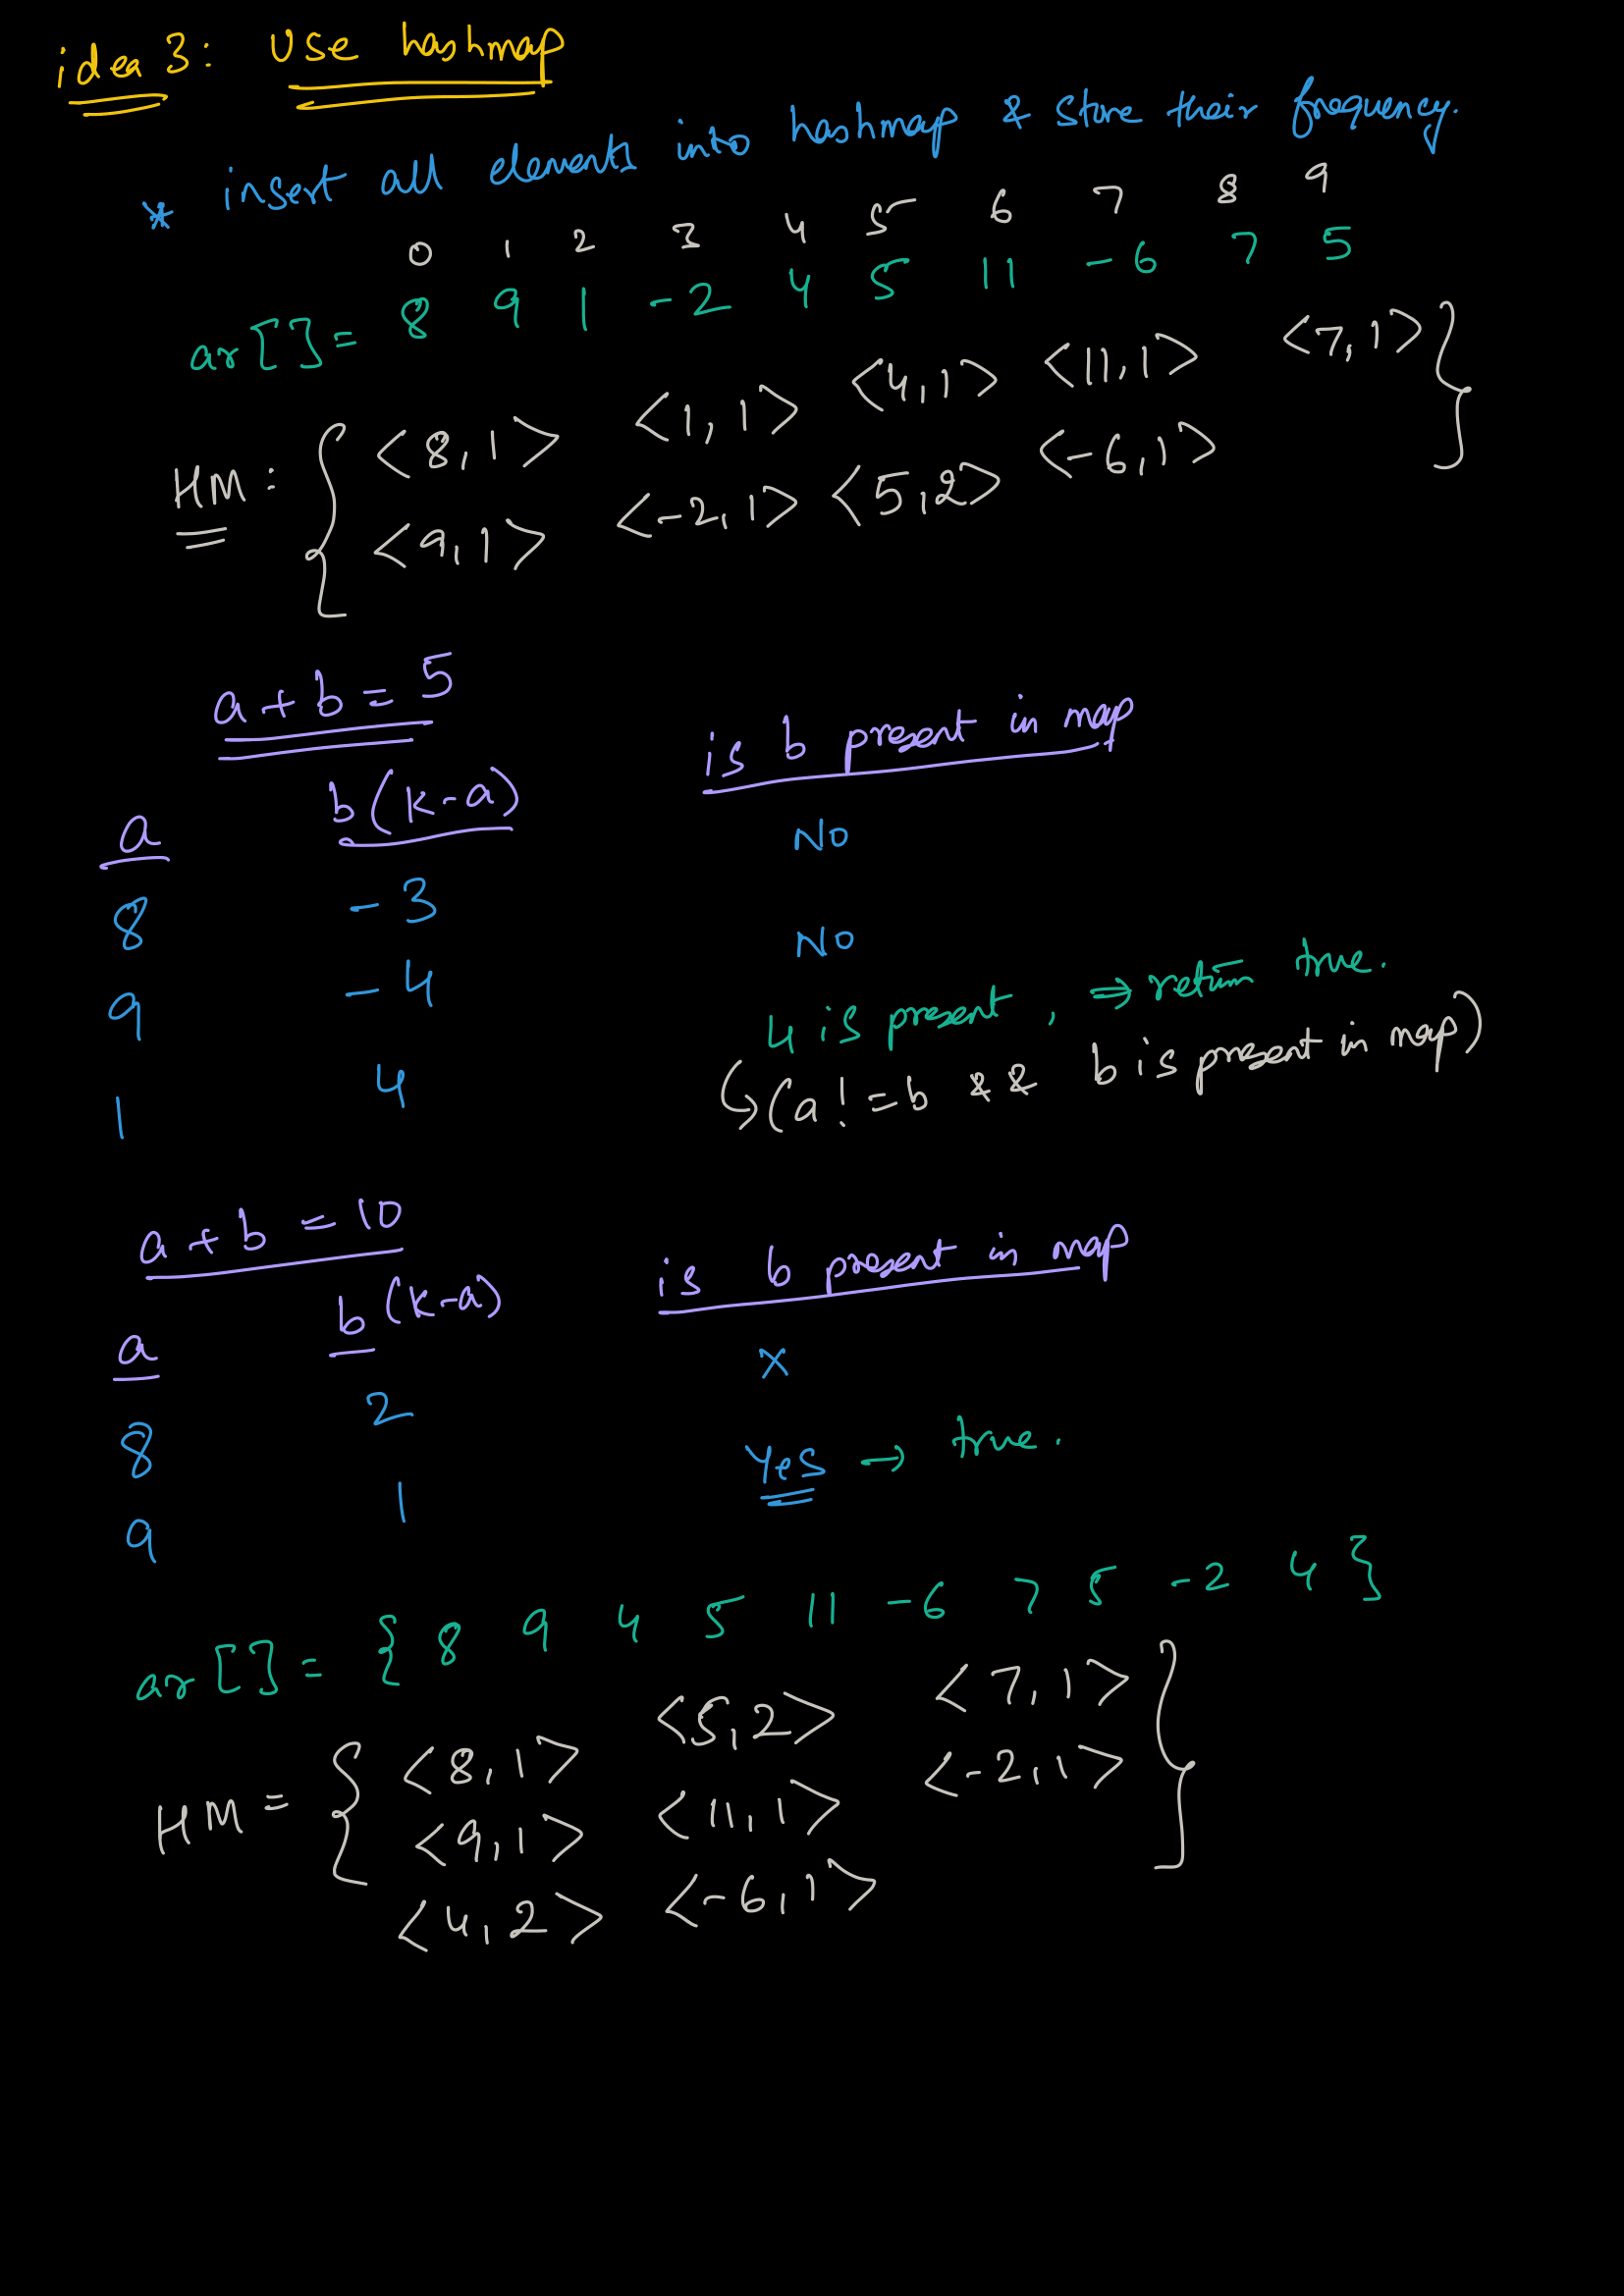 idea 3: Use hashmap
* insert all elements into hashmap & store their frequency.
0 1 2 3 4 5 6 7 8 9
ar[]= 8 9 1 -2 4 5 11 -6 7 5
HM: { <8,1> <1,1> <4,1> <11,1> <7,1> }
<9,1> <-2,1> <5,2> <-6,1>
a+b=5
a b(k-a) is b present in map
8 -3 NO
9 -4 NO
1 4 4 is present, ⇒ return true.
↳(a!=b && b is present in map)
a+b=10
a b(k-a) is b present in map
8 2 x
9 1 Yes → true.
ar[]= { 8 9 4 5 11 -6 7 5 -2 4 }
HM = { <8,1> <5,2> <7,1> }
<9,1> <11,1> <-2,1>
<4,2> <-6,1>